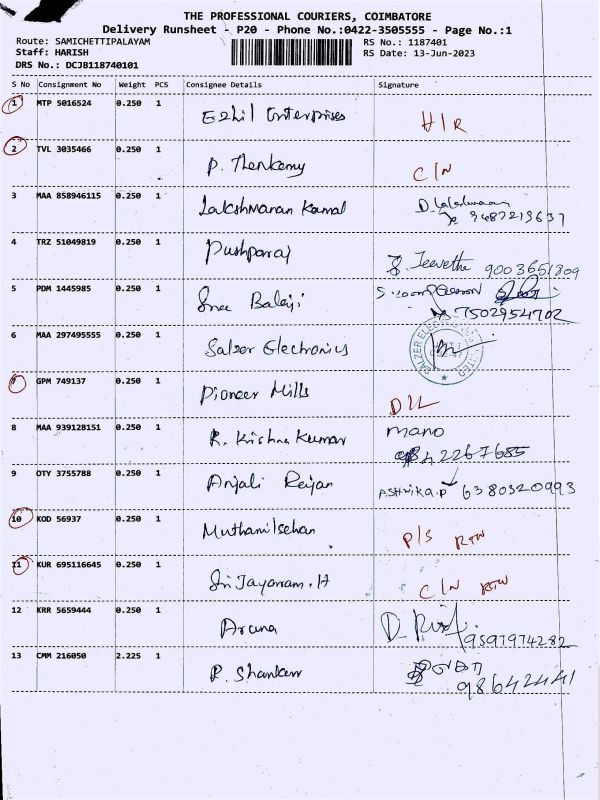 THE PROFESSIONAL COURIERS, COIMBATORE
Delivery Runsheet - P20 - Phone No.:0422-3505555 - Page No.:1
Route: SAMICHETTIPALAYAM
RS No.: 1187401
Staff: HARISH
RS Date: 13-Jun-2023
DRS No.: DCJB118740101
S No Consignment No Weight PCS Consignee Details Signature
1 MTP 5016524 0.250 1 Ezhil Enterprises H/R
2 TVL 3035466 0.250 1 P. Thenkamy C/N
3 MAA 858946115 0.250 1 Lakshmanan Kamal
9487219637
4 TRZ 51049819 0.250 1 Pushparaj Jeevetha 9003651809
5 PDM 1445985 0.250 1 Sree Balaji
7502954702
6 MAA 297495555 0.250 1 Salzer Electronics
7 GPM 749137 0.250 1 Pioneer Mills D/L
8 MAA 939128151 0.250 1 R. Krishna Kumar mano
42267685
9 OTY 3755788 0.250 1 Anjali Rejan Ashvika.P 6380320993
10 KOD 56937 0.250 1 Muthamilsehan P/S RTN
11 KUR 695116645 0.250 1 Sri Jayaram.H C/N RTN
12 KRR 5659444 0.250 1 Aruna
9597974282
13 CMM 216050 2.225 1 R. Shankar
98642441